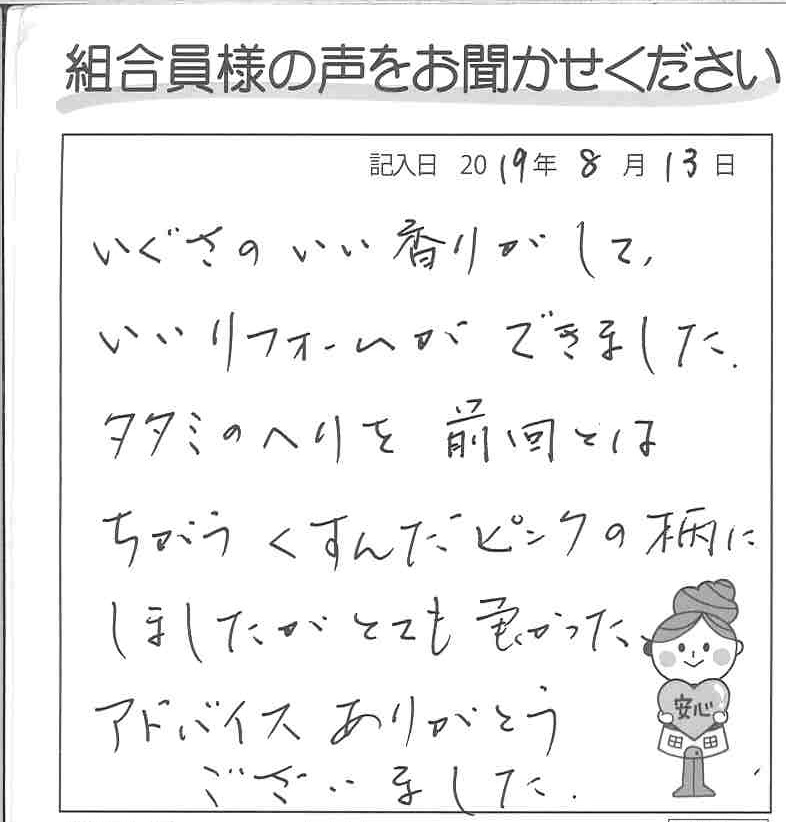 組合員様の声をお聞かせください
記入日 2019年 8月 13日
いぐさの いい 香りがして、
いいリフォームが できました.
タタミのへりを 前回とは
ちがう くすんだピンクの柄に
しましたが とても 良かった、
アドバイス ありがとう
ございました.
安心